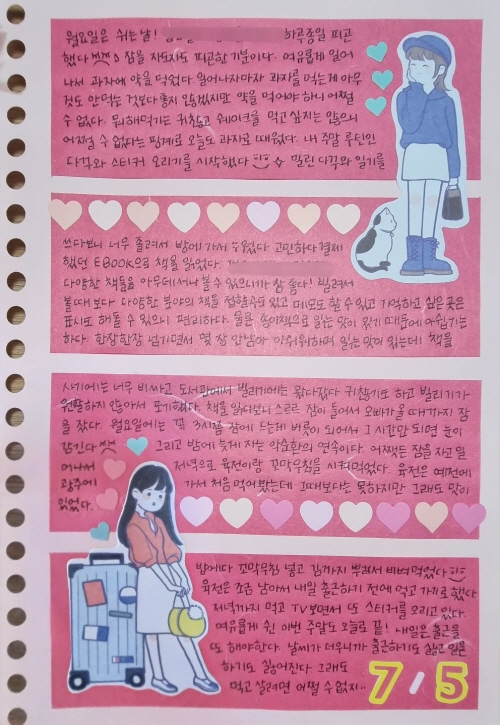 월요일은 쉬는 날! 하루종일 피곤
했다 잠을 자도자도 피곤한 기분이다. 여유롭게 일어
나서 과자에 약을 먹었다. 일어나자마자 과자를 먹는게 아무
것도 안먹는 것보다 좋지 않겠지만 약을 먹어야 하니 어쩔
수 없다. 뭐 해먹기는 귀찮고 쉐이크를 먹고 싶지는 않으니
어쩔 수 없다는 핑계로 오늘도 과자로 때웠다. 내 주말 루틴인
다꾸와 스티커 오리기를 시작했다 밀린 다꾸와 일기를
쓰다보니 너무 졸려서 방에 가서 누웠다. 고민하다 결제
했던 EBOOK으로 책을 읽었다.
다양한 책들을 아무데서나 볼 수 있으니까 참 좋다! 빌려서
볼때보다 다양한 분야의 책을 접할수도 있고 메모도 할 수 있고 기억하고 싶은 곳은
표시도 해둘 수 있으니 편리하다. 물론 종이책으로 읽는 맛이 있기 때문에 아쉽기는
하다 한장한장 넘기면서 몇 장 안남아 아쉬워하며 읽는 맛이 있는데! 책을
사기에는 너무 비싸고 도서관에서 빌리기에는 왔다갔다 귀찮기도 하고 빌리기가
원활하지 않아서 포기했다. 책을 읽다보니 스르륵 잠이 들어서 오빠가 올 때까지 잠
을 잤다. 월요일에는 꼭 3시쯤 잠에 드는게 버릇이 되어서 그 시간만 되면 눈이
감긴다 그리고 밤에 늦게 자는 악순환의 연속이다. 어쨌든 잠을 자고 일
어나서 저녁으로 육전이랑 꼬막무침을 시켜먹었다. 육전은 예전에
광주에 가서 처음 먹어봤는데 그때보다는 못하지만 그래도 맛이
있었다.
밥에다 꼬막무침 넣고 김까지 뿌려서 비벼먹었다
육전은 조금 남아서 내일 출근하기 전에 먹고 가기로 했다
저녁까지 먹고 TV보면서 또 스티커를 오리고 있다.
여유롭게 쉰 이번 주말도 오늘로 끝! 내일은 출근을
또 해야한다. 날씨가 더우니까 출근하기도 싫고 일은
하기도 싫어진다 그래도
먹고 살려면 어쩔 수 없지..
7/5